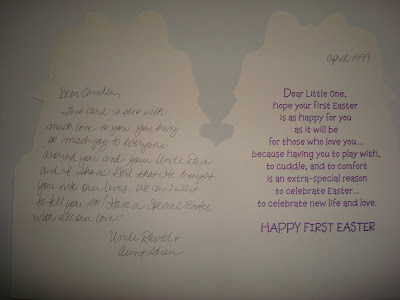 Dear Camden,
This card is sent with
much love to you. You bring
so much joy to everyone
around you and your Uncle
and I thank God that He brought
you into our lives. We can't wait
to tell you so! Have a Special Easter
with all our love!
Uncle David &
Aunt
April 1999
Dear Little One,
hope your first Easter
is as happy for you
as it will be
for those who love you...
because having you to play with,
to cuddle, and to comfort
is an extra-special reason
to celebrate Easter...
to celebrate new life and love.
HAPPY FIRST EASTER